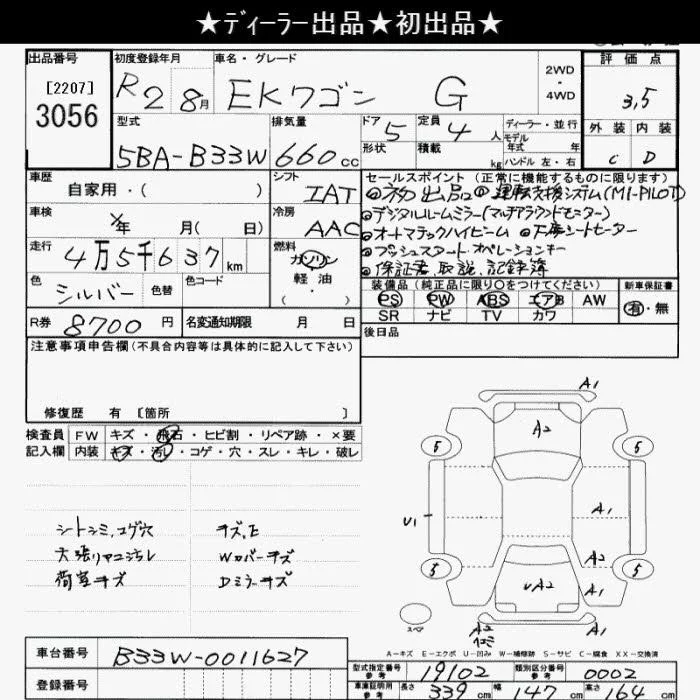 ★ディーラー出品★初出品★
出品番号
[2207]
3056
初度登録年月
R2 8月
車名・グレード
EKワゴン G
2WD
・
4WD
評価点
3,5
型式
5BA-B33W
排気量
660cc
ドア
5
定員
4人
形状
積載
kg
ディーラー・並行
モデル
年式 年
ハンドル 左・右
外装
内装
C
D
車歴
自家用・( )
シフト
IAT
セールスポイント (正常に機能するものに限ります)
初出品 運転支援システム(MI-PILOT)
デジタルルームミラー(マルチアラウンドモニター)
オートマチックハイビーム
プッシュスタート・オペレーションキー
保証書 取説 記録簿
車検
年 月( 日)
冷房
AAC
走行
4万5千637km
燃料
ガソリン
軽油
・( )
色
シルバー
色替
色コード
装備品 (純正品に限り○をつけてください)
新車保証書
PS PW ABS エアB AW
SR ナビ TV カワ
有・無
R券
8700円
名変通知期限 月 日
後日品
注意事項申告欄(不具合内容等は具体的に記入して下さい)
修復歴 有 [箇所 ]
検査員
記入欄
FW キズ・飛石・ヒビ割・リペア跡・×要
内装 キズ・汚レ・コゲ・穴・スレ・キレ・破レ
シートシミ,コゲ穴
天張リヤニ汚レ
荷室キズ
キズ,E
Wカバーキズ
Dミラーキズ
A1
A2
5
5
U1
A1
A2
A1
5
5
UA2
スペア
A2
A1
A-キズ E-エクボ U-凹み W-補修跡 S-サビ C-腐食 XX-交換済
車台番号
B33W-0011627
登録番号
型式指定番号
参考
19102
類別区分番号
参考
0002
車庫証明用
参考
長さ
339cm
幅
147cm
高さ
164cm